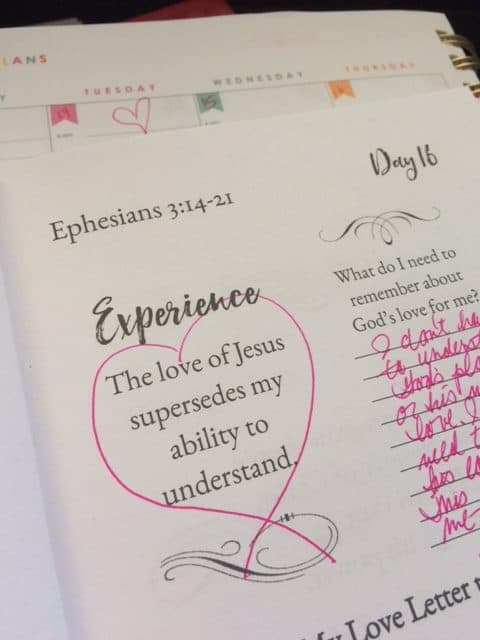 LANS
Y
TUESDAY
WEDNESDAY
THURSDAY
15
Day 16
Ephesians 3:14-21
What do I need to
remember about
God's love for me?
Experience
The love of Jesus
supersedes my
ability to
understand.
I don't ha
to underst
God's pla
or his
love.
need t
his
This
me
My Love Letter t